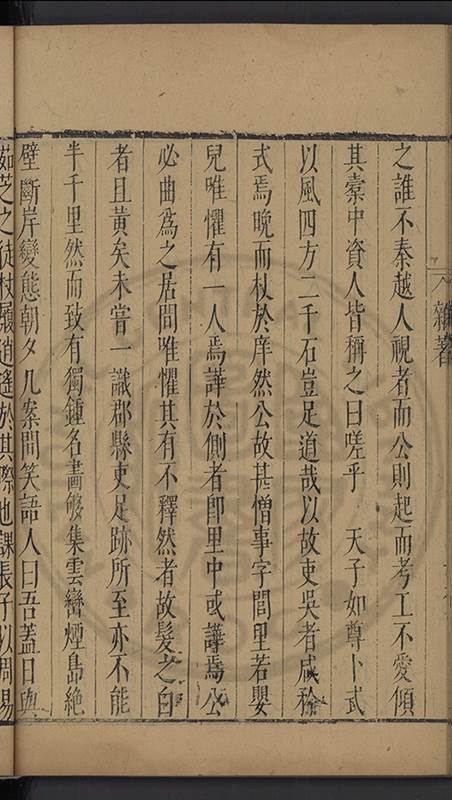 之誰不秦越人視者而公則起而考工不愛傾
其橐中資人皆稱之曰嗟乎 天子如尊卜式
以風四方二千石豈足道哉以故吏吳者咸
式焉晚而杖於庠然公故甚憎事字閭里若嬰
兒唯懼有一人焉譁於側者即里中或譁焉公
必曲爲之居間唯懼其有不釋然者故髮之白
者且黃矣未嘗一識郡縣吏足跡所至亦不能
半千里然而致有獨鍾名畫夠集雲巒煙島絶
壁斷岸變態朝夕几案間笑語人曰吾蓋日與
茹芝之徒杖履逍遙於其際也課長子以周易
雜著